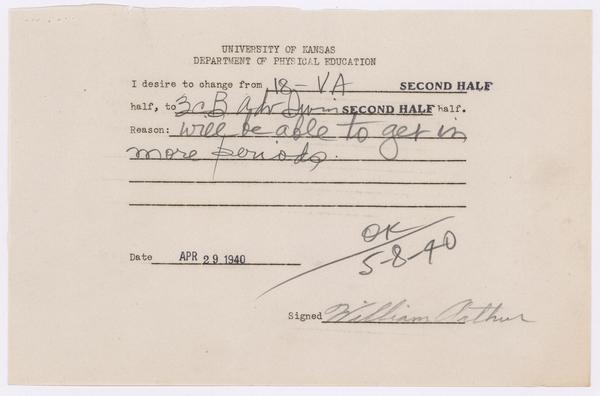 UNIVERSITY OF KANSAS
DEPARTMENT OF PHYSICAL EDUCATION
I desire to change from 18-VA SECOND HALF
half, to 3c B Adv SECOND HALF half.
Reason: will be able to get in
more periods.
OK
5-8-40
Date APR 29 1940
Signed William